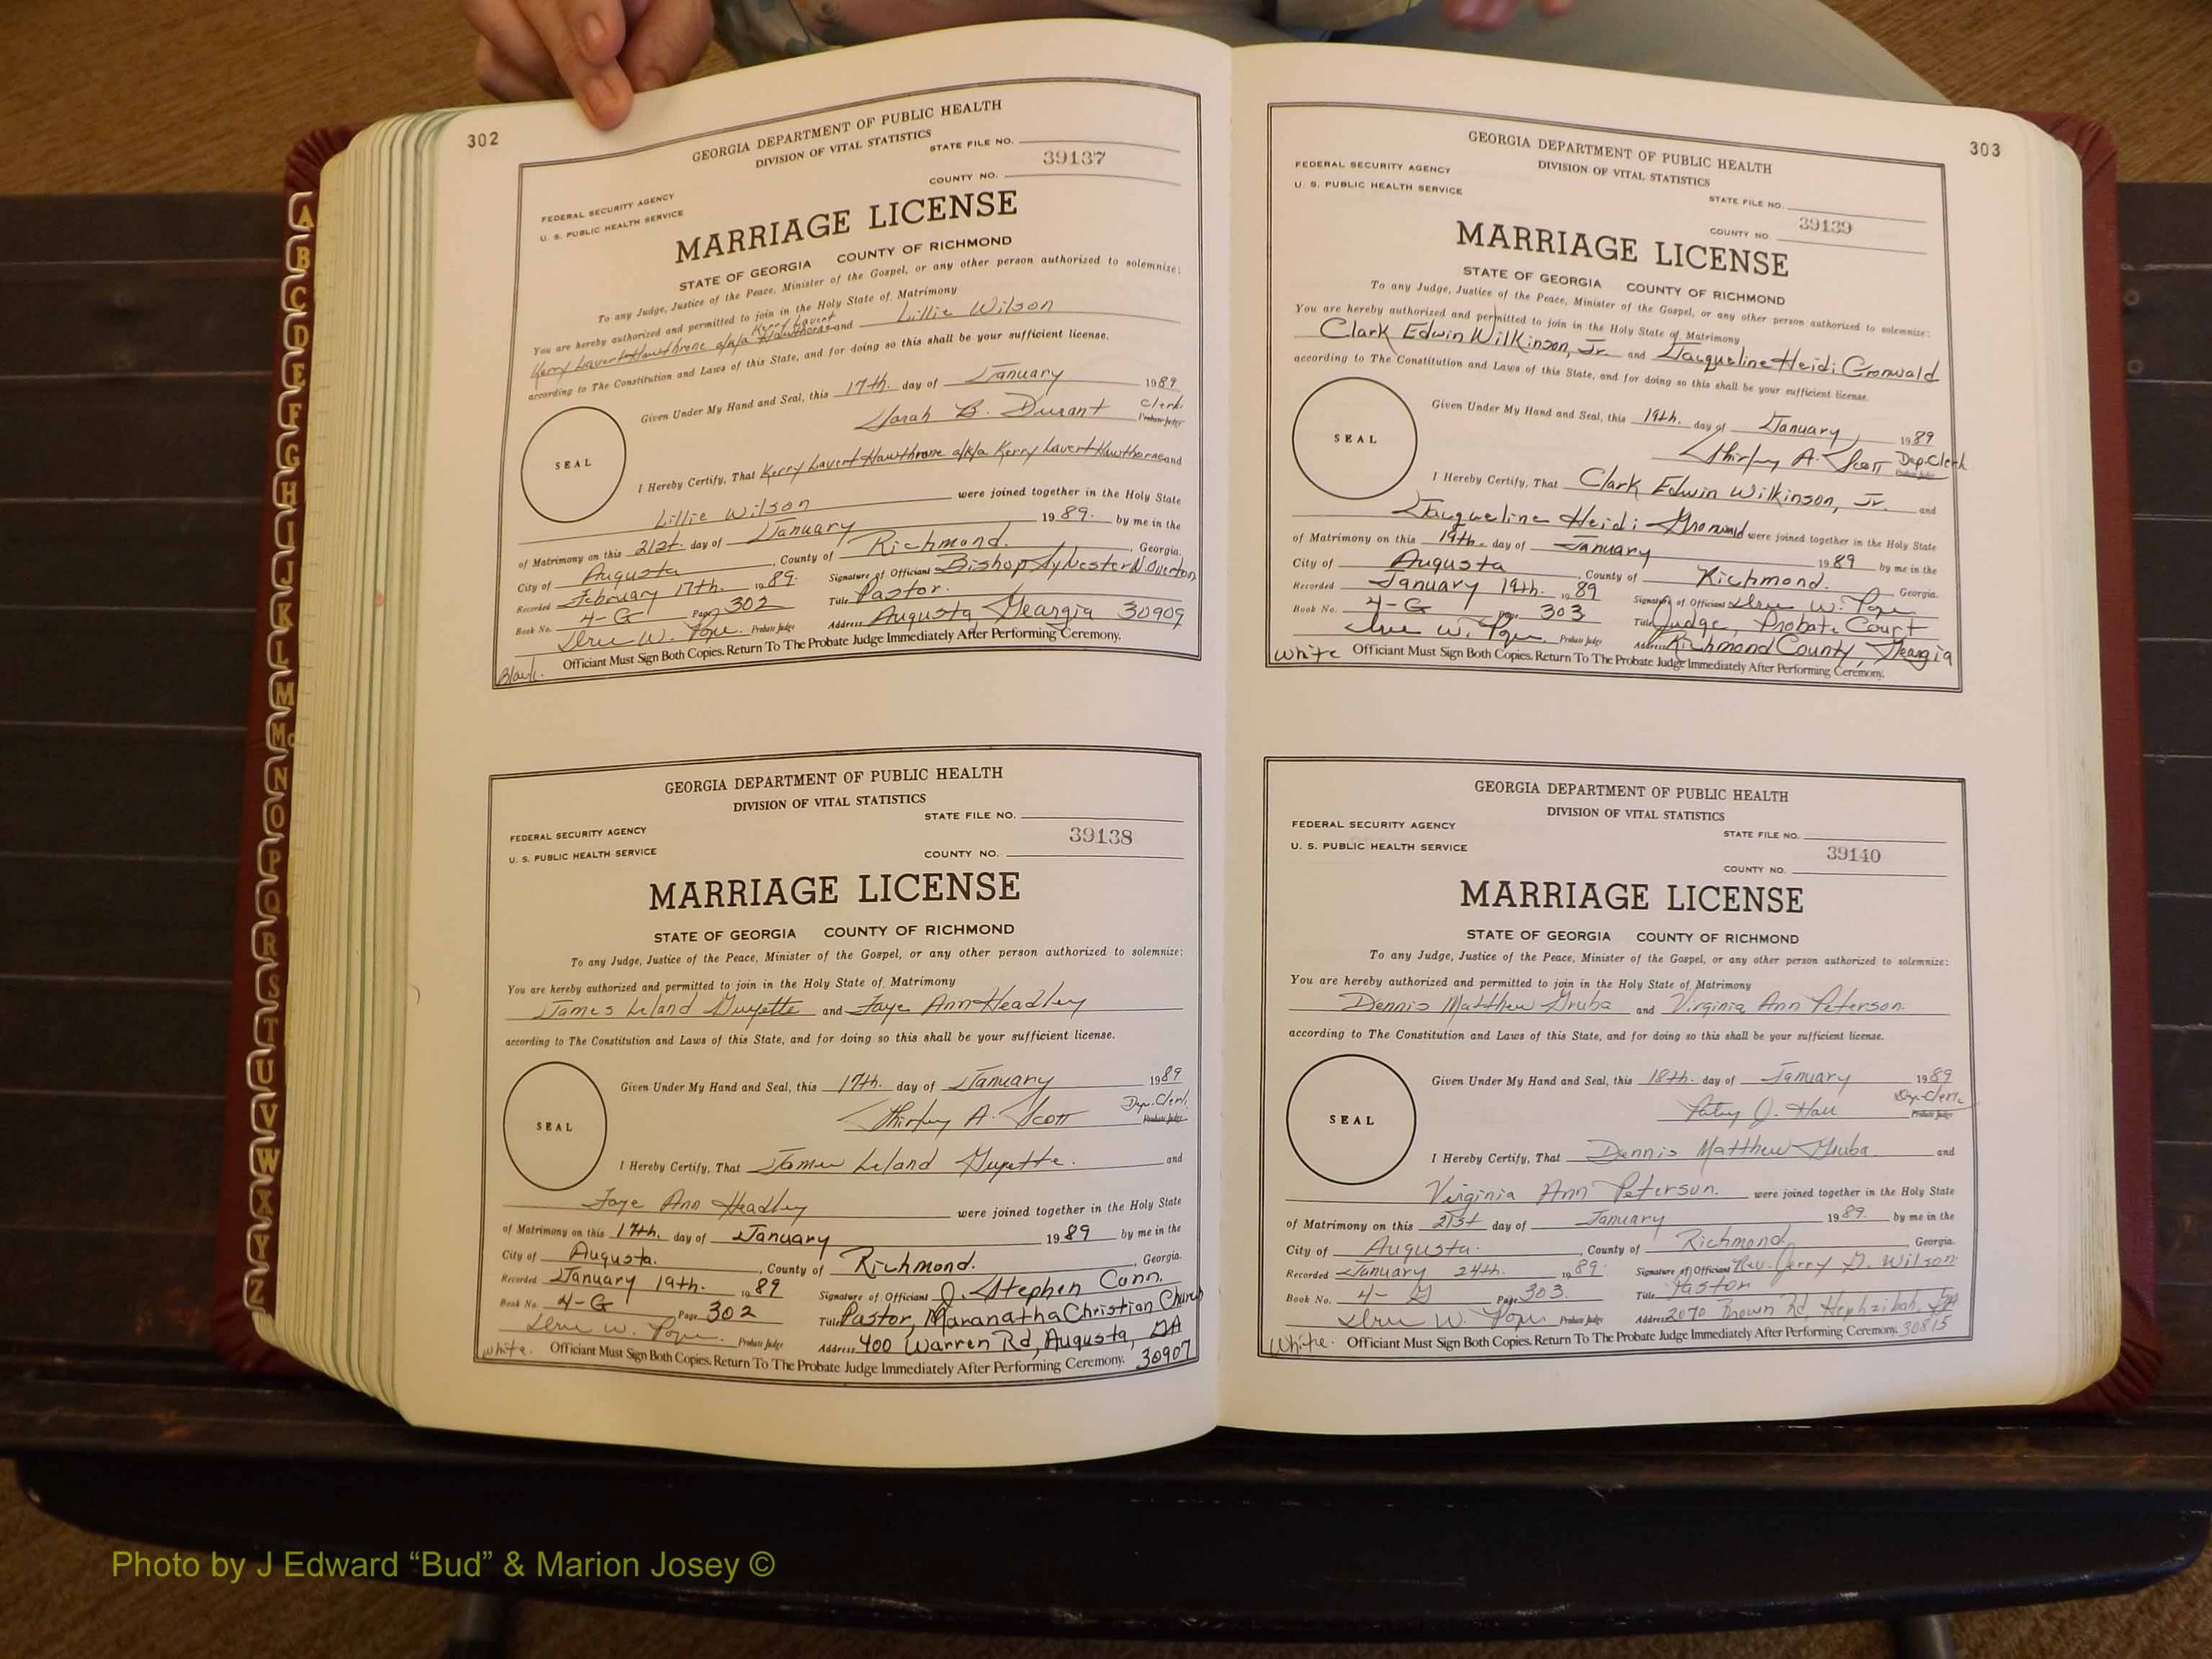 302
GEORGIA DEPARTMENT OF PUBLIC HEALTH
DIVISION OF VITAL STATISTICS
STATE FILE NO.
39137
FEDERAL SECURITY AGENCY
U. S. PUBLIC HEALTH SERVICE
COUNTY NO.
MARRIAGE LICENSE
STATE OF GEORGIA COUNTY OF RICHMOND
To any Judge, Justice of the Peace, Minister of the Gospel, or any other person authorized to solemnize:
You are hereby authorized and permitted to join in the Holy State of Matrimony
Kerry Lavert Hawthrone a/k/a Kerry Lavert Hawthorne and Lillie Wilson
according to The Constitution and Laws of this State, and for doing so this shall be your sufficient license.
Given Under My Hand and Seal, this 17th. day of January 1989
Sarah B. Durant Clerk
Probate Judge
SEAL
I Hereby Certify, That Kerry Lavert Hawthrone a/k/a Kerry Lavert Hawthorne and
Lillie Wilson were joined together in the Holy State
of Matrimony on this 21st. day of January 1989. by me in the
City of Augusta, County of Richmond. Georgia.
Recorded February 17th. 1989. Signature of Officiant Bishop Sylvester N Overton
Book No. 4-G Page 302 Title Pastor.
Probate Judge Address Augusta, Georgia 30909
Officiant Must Sign Both Copies. Return To The Probate Judge Immediately After Performing Ceremony.
Black.
GEORGIA DEPARTMENT OF PUBLIC HEALTH
DIVISION OF VITAL STATISTICS
STATE FILE NO.
39138
FEDERAL SECURITY AGENCY
U. S. PUBLIC HEALTH SERVICE
COUNTY NO.
MARRIAGE LICENSE
STATE OF GEORGIA COUNTY OF RICHMOND
To any Judge, Justice of the Peace, Minister of the Gospel, or any other person authorized to solemnize:
You are hereby authorized and permitted to join in the Holy State of Matrimony
James Leland Guyette and Faye Ann Headley
according to The Constitution and Laws of this State, and for doing so this shall be your sufficient license.
Given Under My Hand and Seal, this 17th. day of January 1989
Shirley A. Scott Dep. Clerk
Probate Judge
SEAL
I Hereby Certify, That James Leland Guyette. and
Faye Ann Headley were joined together in the Holy State
of Matrimony on this 17th. day of January 1989 by me in the
City of Augusta., County of Richmond. Georgia.
Recorded January 19th. 1989 Signature of Officiant J. Stephen Conn.
Book No. 4-G Page 302 Title Pastor, Maranatha Christian Church
Probate Judge Address 400 Warren Rd, Augusta, GA
30907
white. Officiant Must Sign Both Copies. Return To The Probate Judge Immediately After Performing Ceremony.
303
GEORGIA DEPARTMENT OF PUBLIC HEALTH
DIVISION OF VITAL STATISTICS
FEDERAL SECURITY AGENCY
U. S. PUBLIC HEALTH SERVICE
STATE FILE NO.
39139
COUNTY NO.
MARRIAGE LICENSE
STATE OF GEORGIA COUNTY OF RICHMOND
To any Judge, Justice of the Peace, Minister of the Gospel, or any other person authorized to solemnize:
You are hereby authorized and permitted to join in the Holy State of Matrimony
Clark Edwin Wilkinson, Jr. and Jacqueline Heidi Gronwald
according to The Constitution and Laws of this State, and for doing so this shall be your sufficient license.
Given Under My Hand and Seal, this 19th. day of January, 1989
Shirley A. Scott Dep. Clerk
Probate Judge
SEAL
I Hereby Certify, That Clark Edwin Wilkinson, Jr. and
Jacqueline Heidi Gronwald were joined together in the Holy State
of Matrimony on this 19th. day of January 1989 by me in the
City of Augusta, County of Richmond. Georgia.
Recorded January 19th. 1989 Signature of Officiant
Book No. 4-G Page 303 Title Judge, Probate Court
Probate Judge Address Richmond County, Georgia
white Officiant Must Sign Both Copies. Return To The Probate Judge Immediately After Performing Ceremony.
GEORGIA DEPARTMENT OF PUBLIC HEALTH
DIVISION OF VITAL STATISTICS
FEDERAL SECURITY AGENCY
U. S. PUBLIC HEALTH SERVICE
STATE FILE NO.
39140
COUNTY NO.
MARRIAGE LICENSE
STATE OF GEORGIA COUNTY OF RICHMOND
To any Judge, Justice of the Peace, Minister of the Gospel, or any other person authorized to solemnize:
You are hereby authorized and permitted to join in the Holy State of Matrimony
Dennis Matthew Gruba and Virginia Ann Peterson.
according to The Constitution and Laws of this State, and for doing so this shall be your sufficient license.
Given Under My Hand and Seal, this 18th. day of January 1989
J. Hall Dep. Clerk
Probate Judge
SEAL
I Hereby Certify, That Dennis Matthew Gruba. and
Virginia Ann Peterson. were joined together in the Holy State
of Matrimony on this 21st day of January 1989. by me in the
City of Augusta., County of Richmond, Georgia.
Recorded January 24th. 1989. Signature of Officiant Rev. Jerry D. Wilson
Book No. 4-G Page 303. Title Pastor
Probate Judge Address 2070 Brown Rd Hephzibah, Ga
30815
White. Officiant Must Sign Both Copies. Return To The Probate Judge Immediately After Performing Ceremony.
A
B
C
D
E
F
G
H
I
J
K
L
M
Mc
N
O
P
Q
R
S
T
U
V
W
X
Y
Z
Photo by J Edward “Bud” & Marion Josey ©